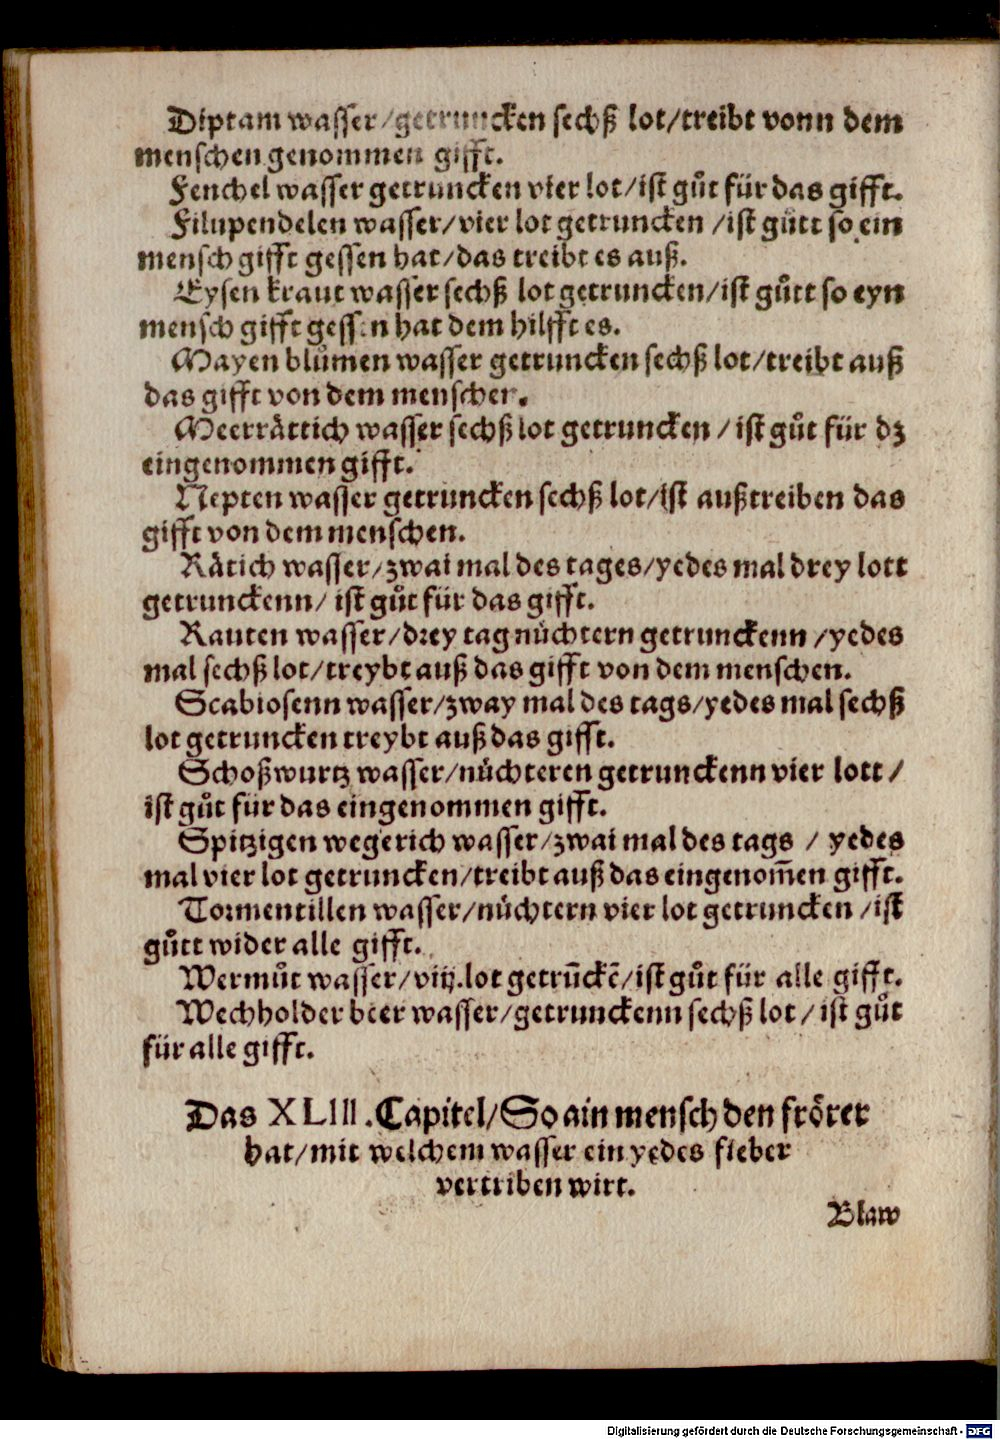 Diptam wasser/getruncken sechß lot/treibt vonn dem
menschen genommen gifft.
Fenchel wasser getruncken vier lot/ist gůt für das gifft.
Filupendelen wasser/vier lot getruncken /ist gůtt so ein
mensch gifft gessen hat/das treibt es auß.
Eysen kraut wasser sechß lot getruncken/ist gůtt so eyn
mensch gifft gessen hat dem hilfft es.
Mayen blůmen wasser getruncken sechß lot/treibt auß
das gifft von dem menschen.
Meerrättich wasser sechß lot getruncken / ist gůt für dz
eingenommen gifft.
Nepten wasser getruncken sechß lot/ist außtreiben das
gifft von dem menschen.
Rätich wasser/zwai mal des tages/yedes mal drey lott
getrunckenn/ ist gůt für das gifft.
Rauten wasser/drey tag nüchtern getrunckenn /yedes
mal sechß lot/treybt auß das gifft von dem menschen.
Scabiosenn wasser/zway mal des tags/yedes mal sechß
lot getruncken treybt auß das gifft.
Schoßwurtz wasser/nüchteren getrunckenn vier lott /
ist gůt für das eingenommen gifft.
Spitzigen wegerich wasser/zwai mal des tags / yedes
mal vier lot getruncken/treibt auß das eingenom̃en gifft.
Tormentillen wasser/nüchtern vier lot getruncken /ist
gůtt wider alle gifft.
Wermůt wasser/viij.lot getrūckē/ist gůt für alle gifft.
Wechholder beer wasser/getrunckenn sechß lot / ist gůt
für alle gifft.
Das XLIII .Capitel/So ain mensch den frörer
hat/mit welchem wasser ein yedes fieber
vertriben wirt.
Blaw
Digitalisierung gefördert durch die Deutsche Forschungsgemeinschaft - DFG